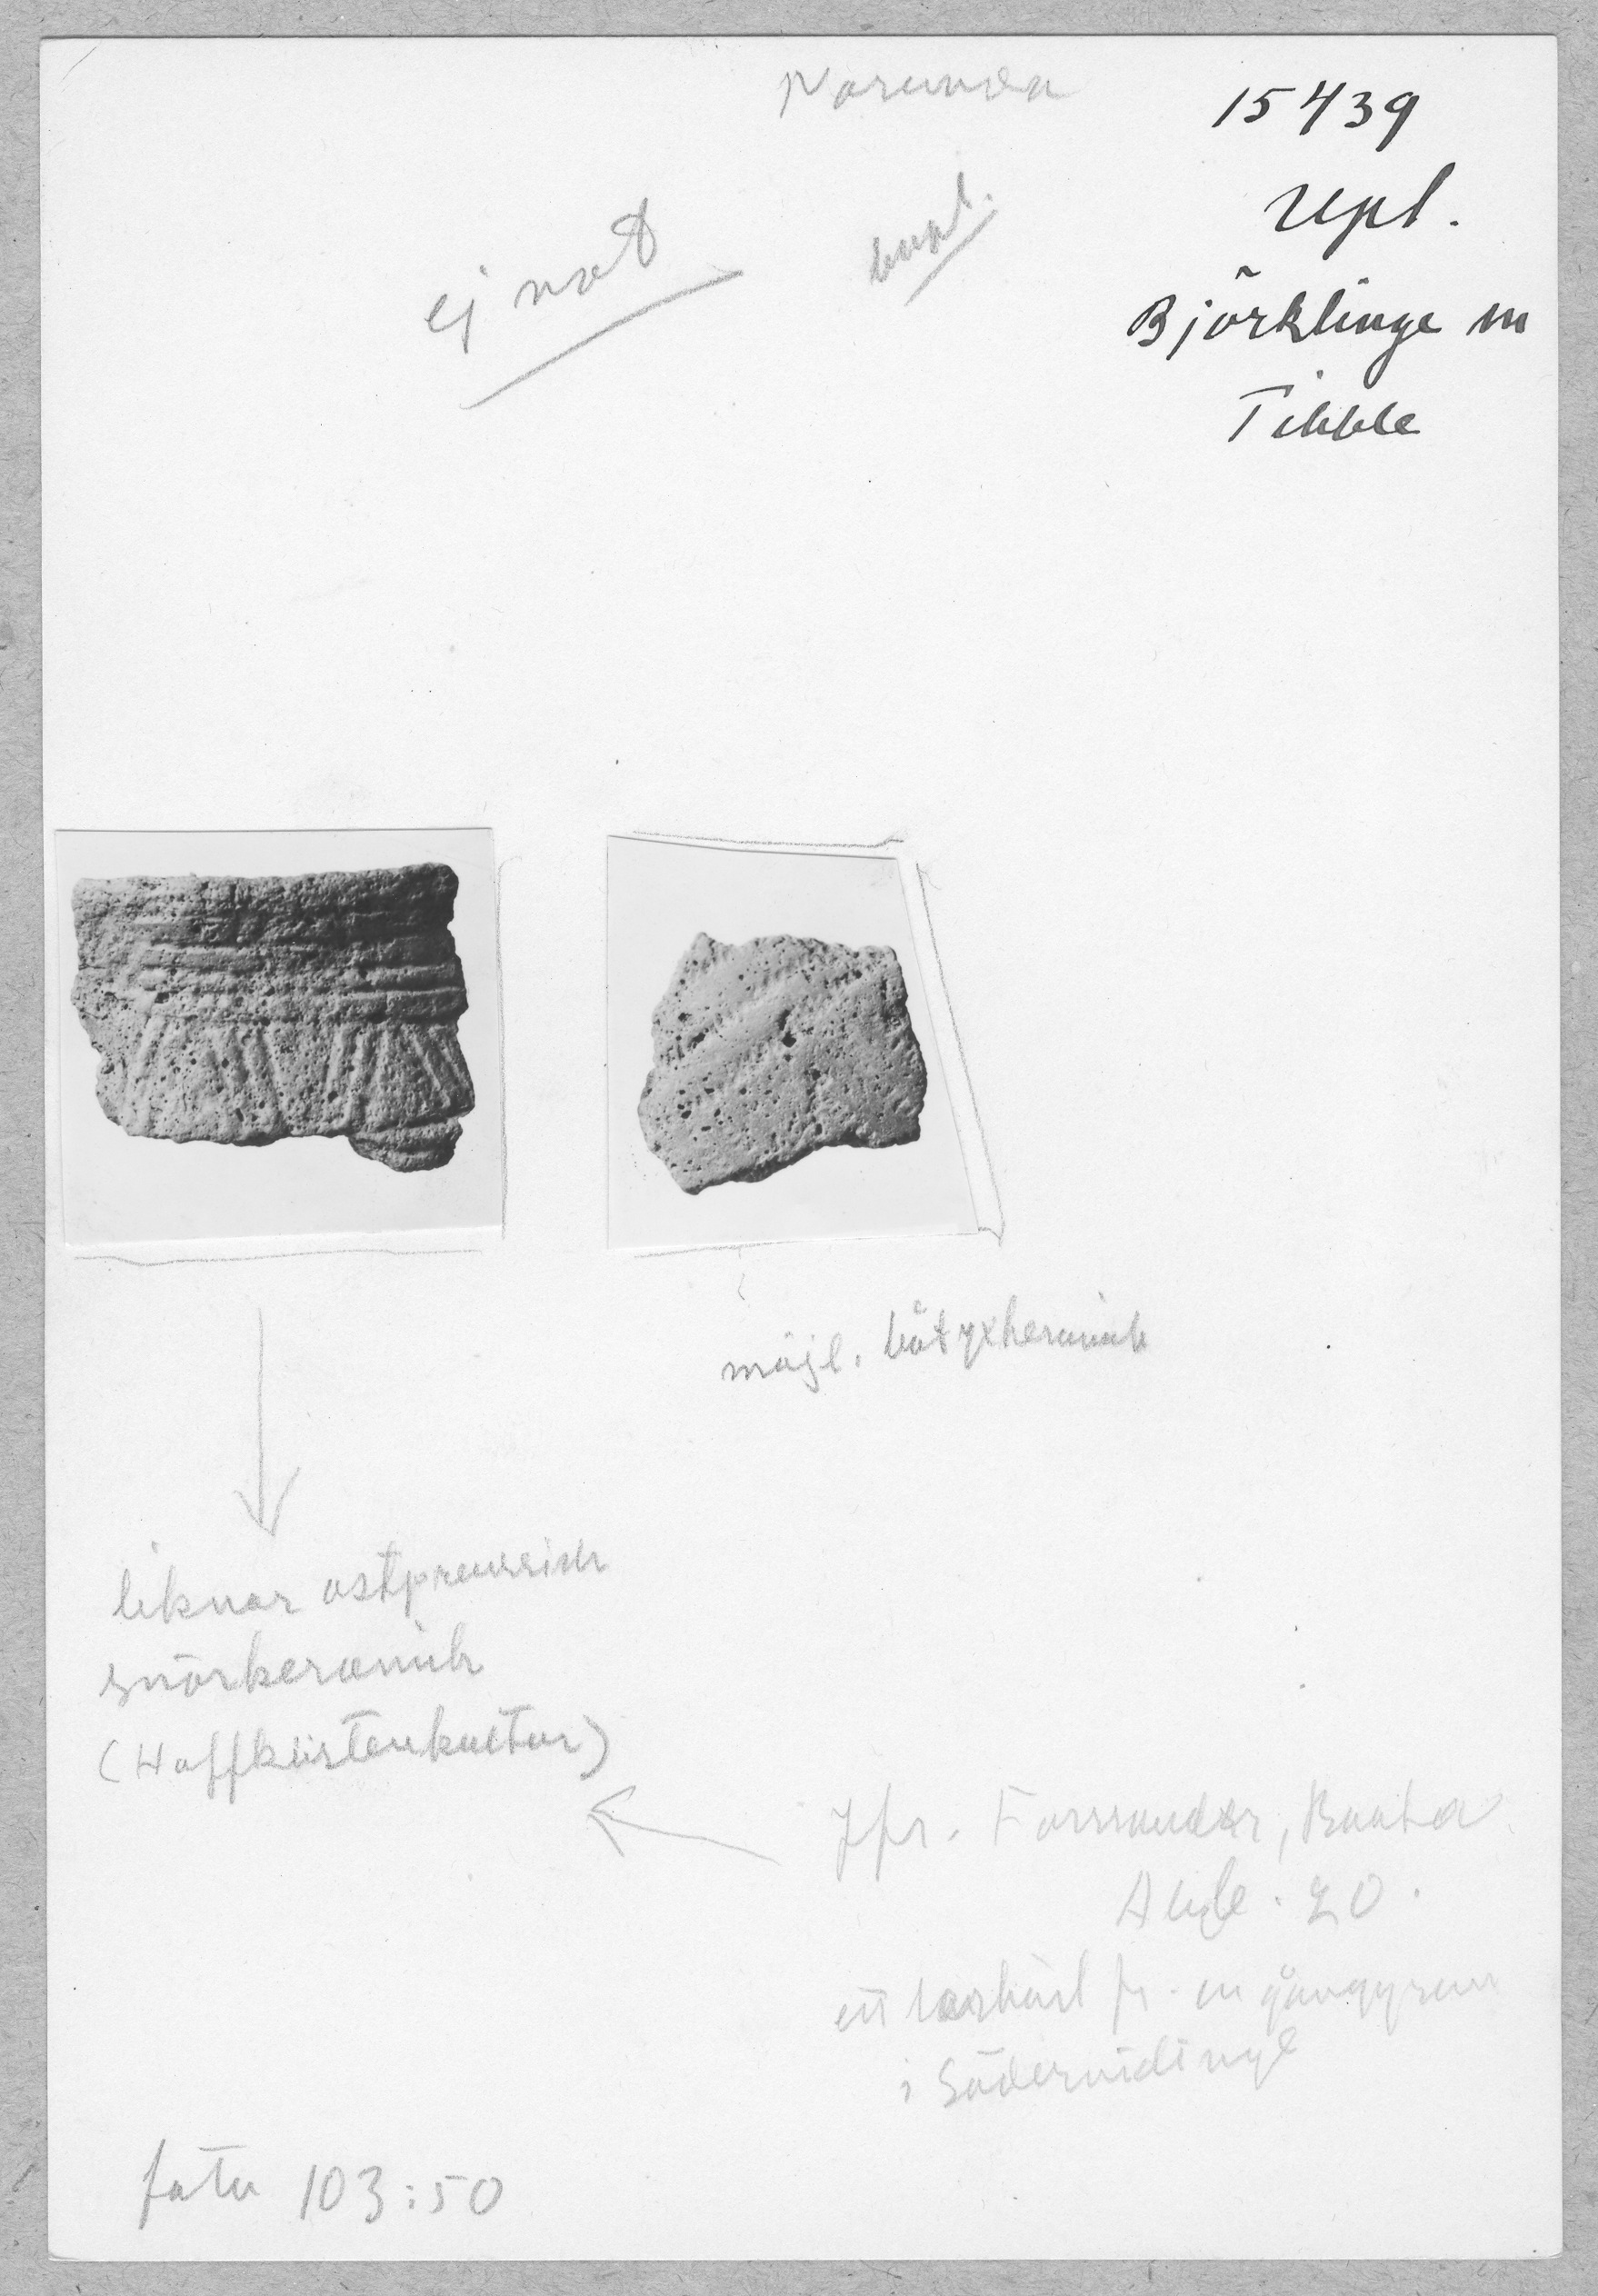 Norunda
15439
Upl.
Björklinge sn
Tibble
ej not
möjl. båtyxkeramik
liknar ostpreussisk
snörkeramik
(Haffküstenkultur)
Jfr. Forssander, Bootax
20.
ett lerkärl fr. en gånggrav
i Södervidinge
foto 103:50